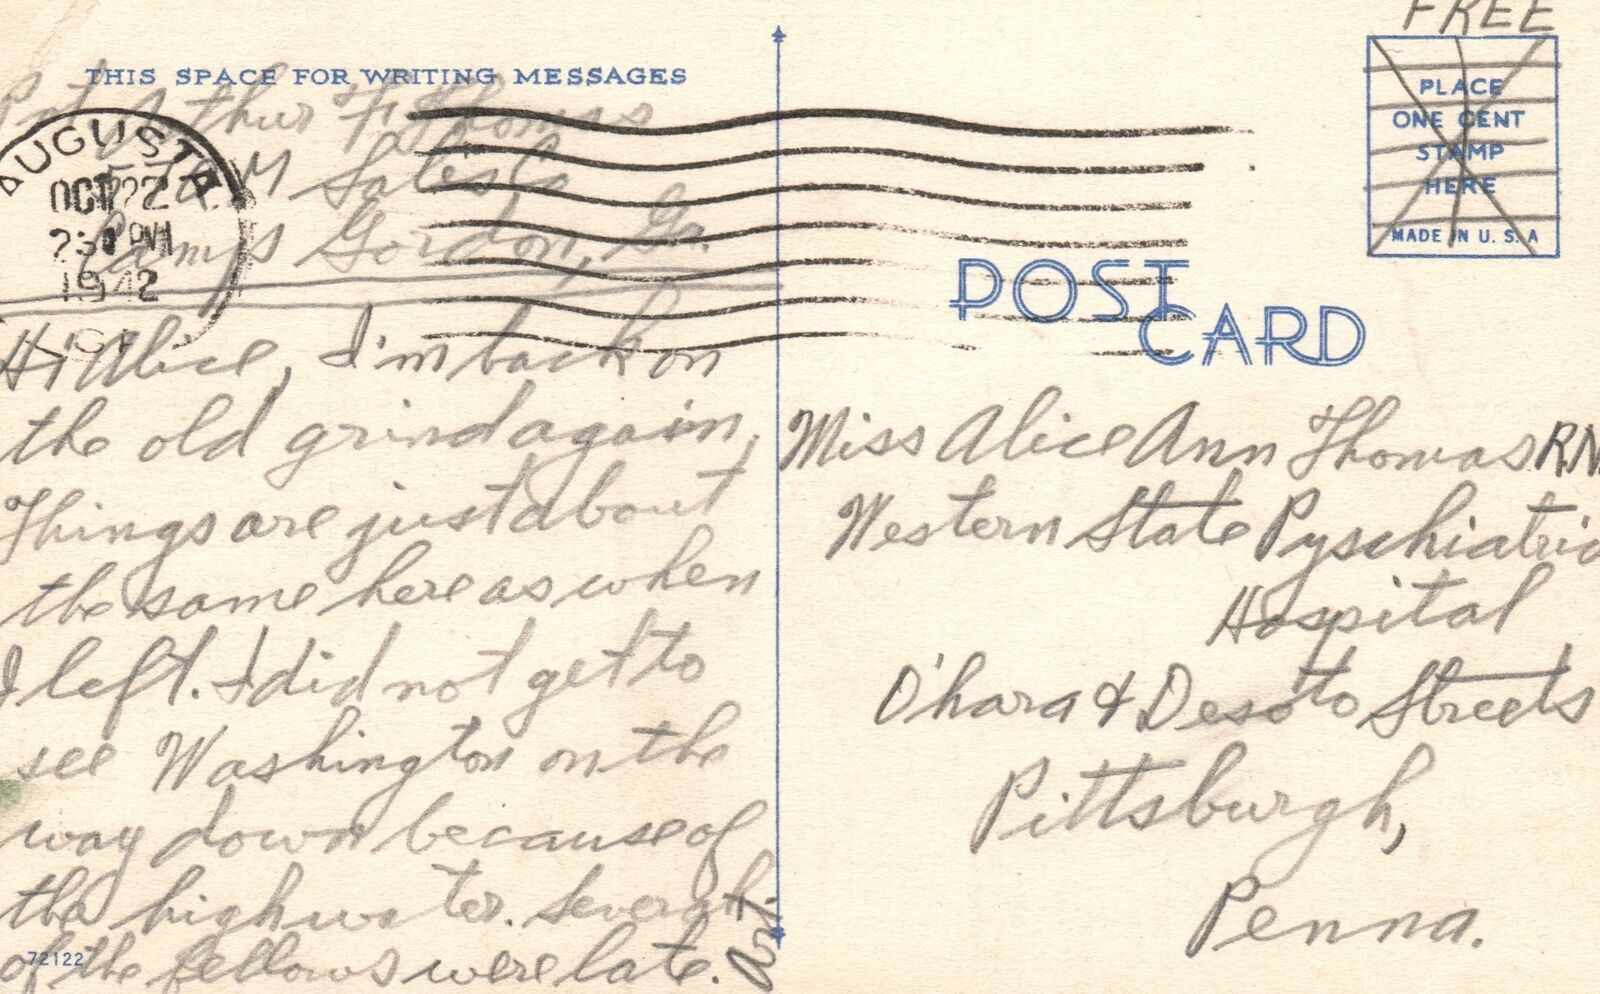 FREE
THIS SPACE FOR WRITING MESSAGES
PLACE
ONE CENT
STAMP
HERE
MADE IN U.S.A
AUGUSTA
OCT 22
1942
Pvt Arthur F. Thomas
M Sales Co
Camp Gordon, Ga.
POST
CARD
Hi Alice, I'm back on
the old grind again.
Things are just about
the same here as when
I left. I did not get to
see Washington on the
way down because of
the high water. Several
of the fellows were late.
Art.
72122
Miss Alice Ann Thomas R.N.
Western State Pyschiatric
Hospital
O'hara & Desoto Streets
Pittsburgh,
Penna.